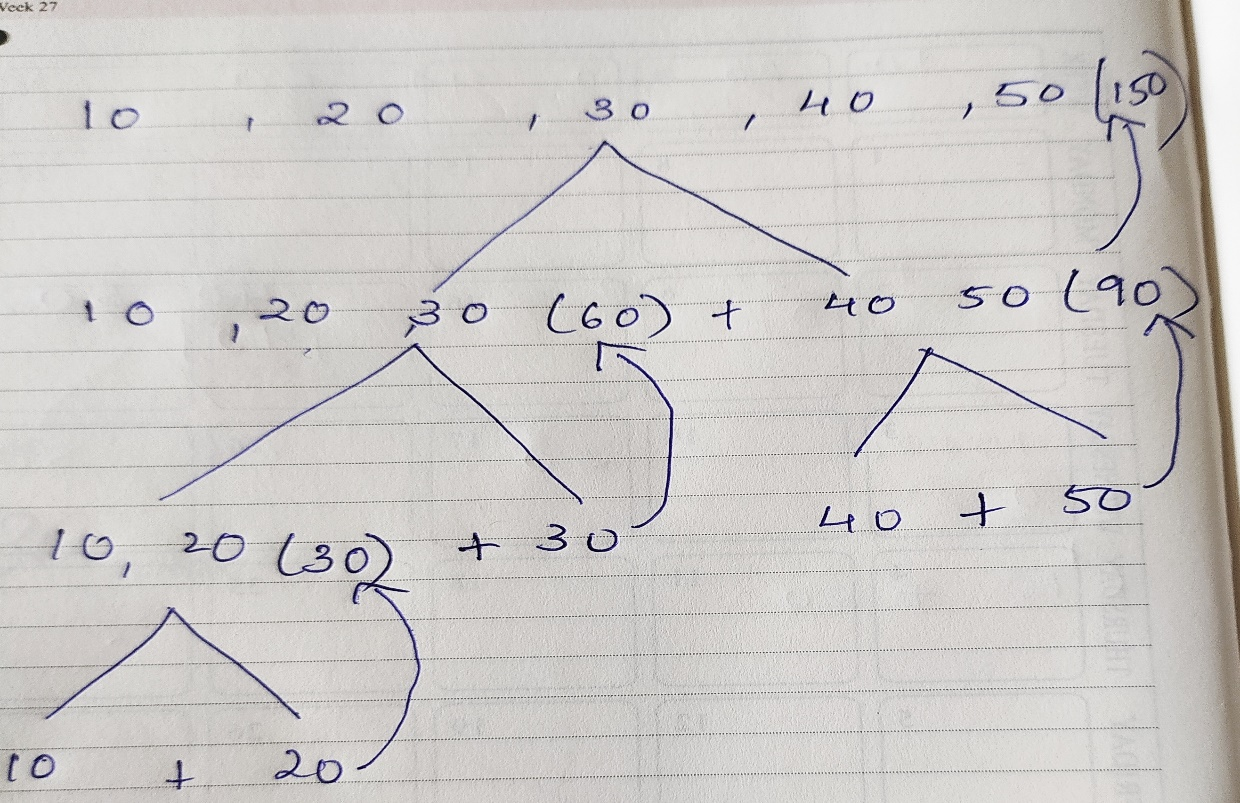 Week 27
10 , 20 , 30 , 40 , 50 (150)
10 , 20 , 30 (60) + 40 50 (90)
10, 20 (30) + 30 40 + 50
10 + 20